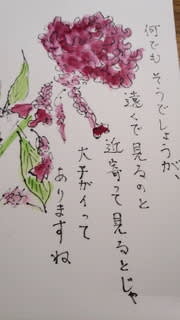 何でもそうでしょうが、
遠くで見るのと
近寄って見るとじゃ
大チガイって
ありますね